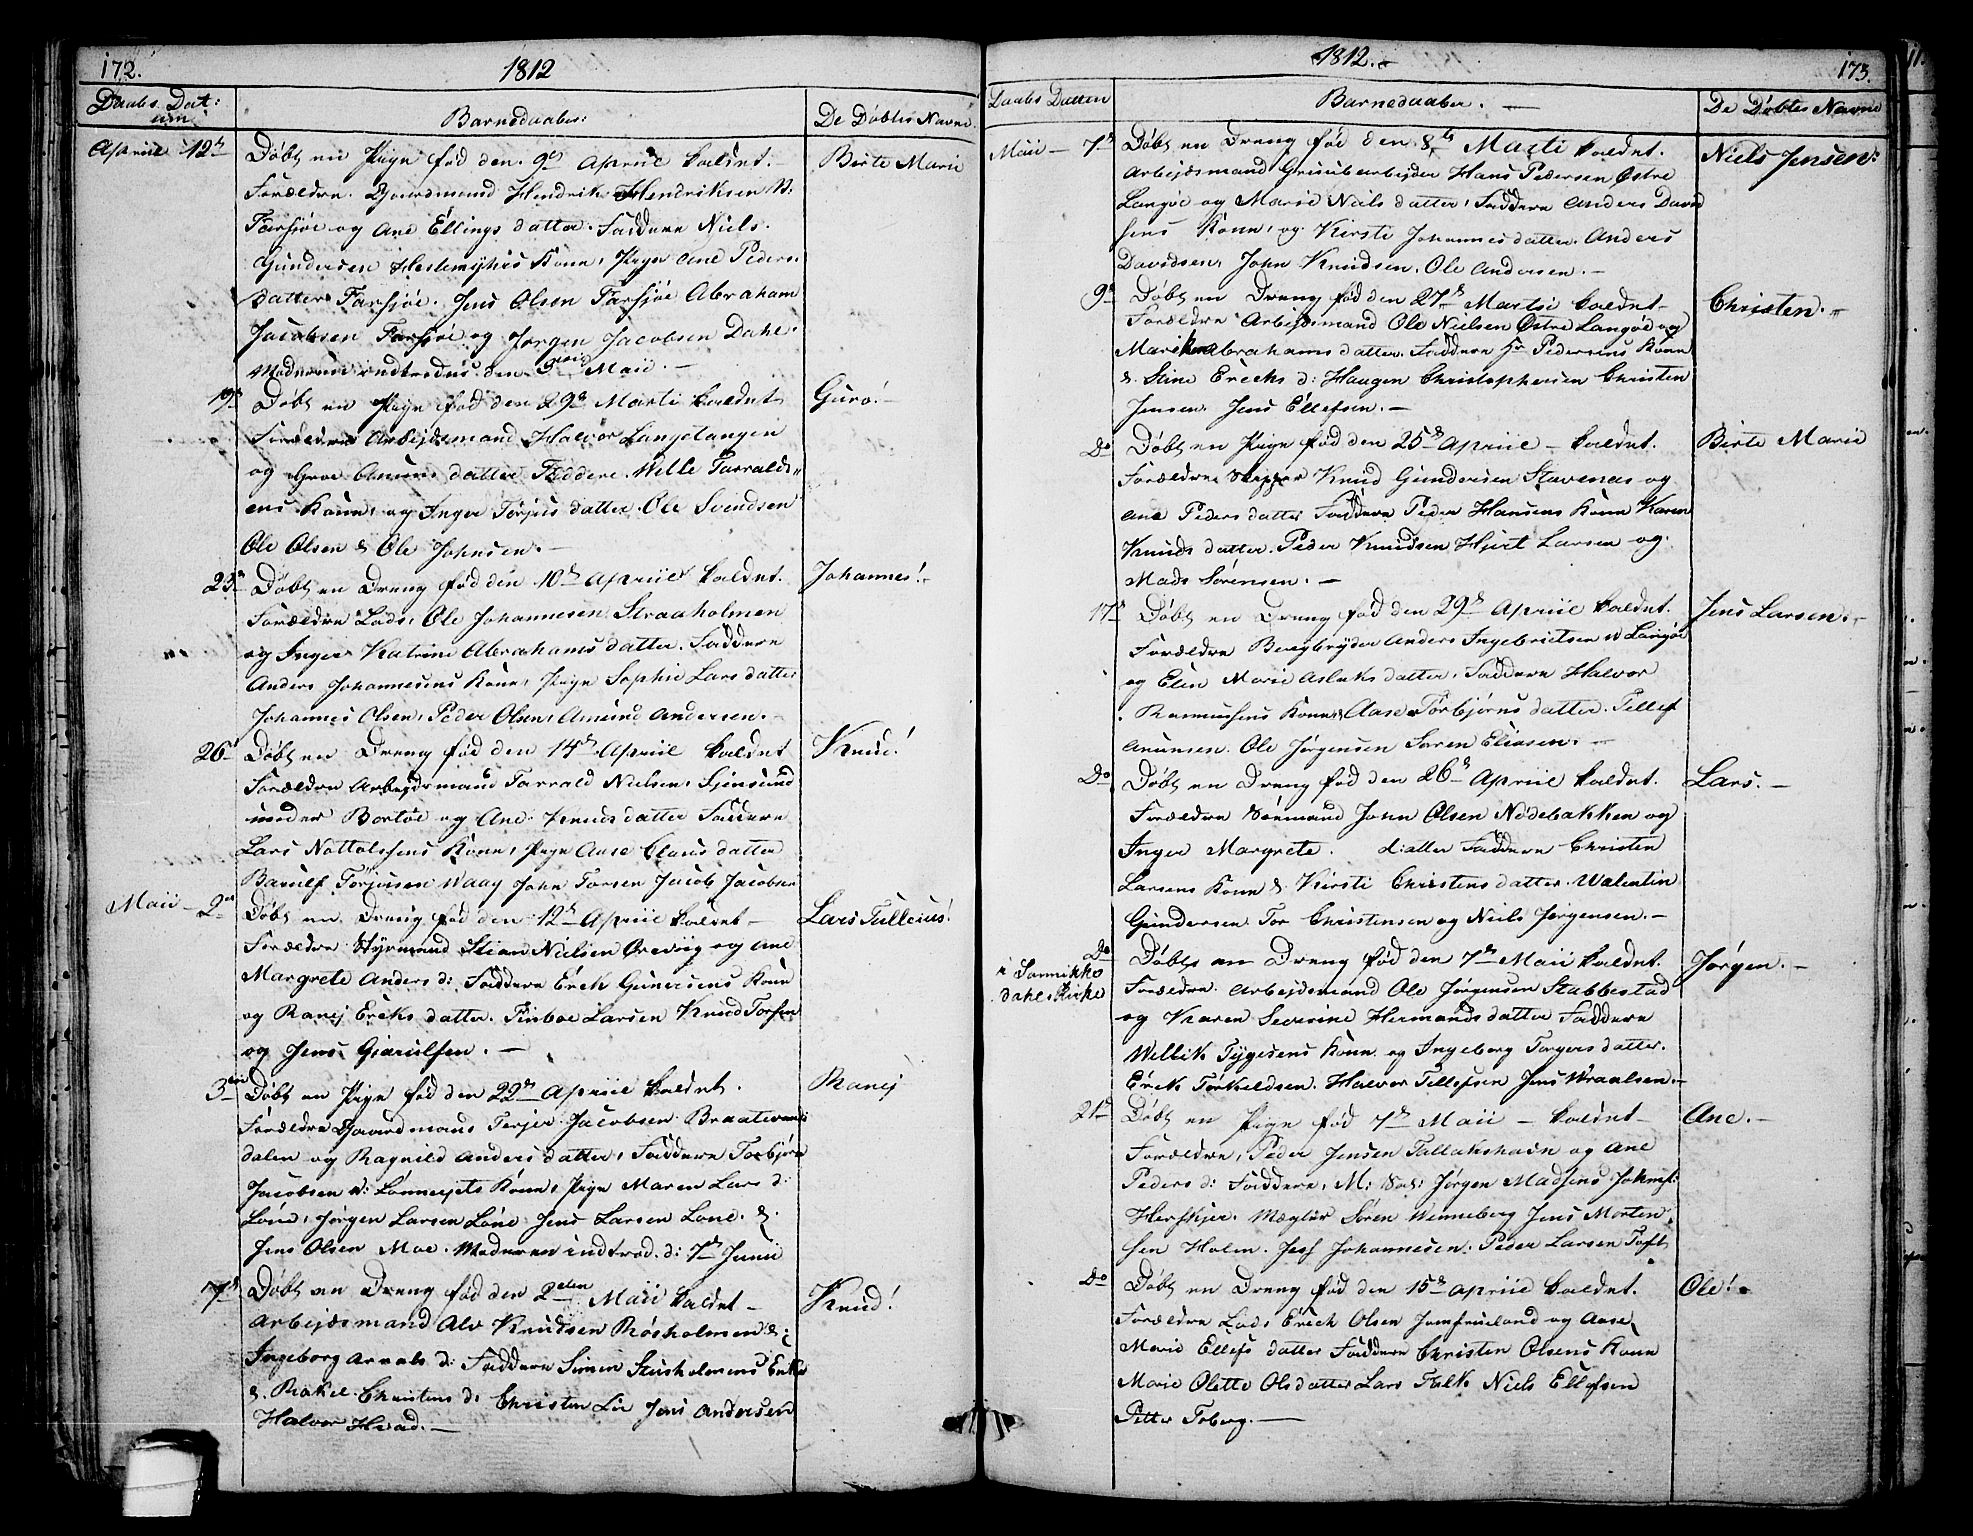 172.
1812
Daabs Dat:
um
Barnedaaber:
De Døbtes Navne
Apriil 12te
Døbt en Pige fød den 9de Apriil kaldet
Birte Marie
Forældre Gaardmand Hendrik Hendriksen N:
Farsjøe og Ane Ellings datter. Faddere Niels
Gundersen Hestemyhrs Kone, Pige Ane Peders
datter Farsjøe. Jens Olsen Farsjøe Abraham
Jacobsen Farsjøe og Jørgen Jacobsen Dahl
Moderen indtrædes den Maii. —
19de
Døbt en Pige fød den 29de Marti kaldet
Guro! —
Forældre Arbejdsmand Halvor Langetangen
og Groe Amunds datter Faddere. Wille Tarralds
ens Kone, og Inger Torjus datter. Ole Svendsen
Ole Olsen & Ole Johnsen. —
23de
Døbt en Dreng fød den 10de Apriil kaldet.
Johannes! —
Forældre Lods, Ole Johannesen Straaholmen
og Inger Katrine Abrahams datter. Faddere
Anders Johannesens Kone, Pige Sophie Lars datter
Johannes Olsen, Peder Olsen, Amund Andersen. —
26de
Døbt en Dreng fød den 14de Apriil kaldet
Knud!
Forældre Arbejdsmand Tarrald Nielsen,
Bortøe og Ane Knuds datter Faddere
Lars Nottolfsens Kone, Pige Aase Claus datter
Barulf Torjusen Waag John Torsen Jacob Jacobsen
Maii — 2den
Døbt en Dreng fød den 12te Apriil kaldet —
Lars Tulleius!
Forældre Styrmand Stian Nielsen Ørevig og Ane
Margrete Anders d: Faddere Erich Gunersens Kone
og Ranej Erichs datter. Finboe Larsen Knud Torsen
og Jens Gjerulfsen. —
3die
Døbt en Pige fød den 22de Apriil kaldet.
Ranej
Forældre Gaardmand Terjer Jacobsen Braatevands
dalen og Ragnild Anders datter, Faddere Torbjørn
Jacobsen Lønnegjets Kone, Pige Maren Lars d:
Løne, Jørgen Larsen Løne Jens Larsen Lone. &
Jens Olsen Moe. Moderen indtrod. d: 7de Junii
7de
Døbt en Dreng fød den 2den Maii kaldet —
Knud!
Arbejdsmand Alv Knudsen Røsholmen &
Ingeborg d: Faddere Simen Enke
& Rakel Christens d: Christen Lie Jens Andersen
Halvor —
1812. —
173.
Daabs Datten
Barnedaaber. —
De Døbtes Navne
Maii — 7de
Døbt en Dreng fød den 8de Marti kaldet.
Niels Jensen:
Arbejdsmand Grubearbejder Hans Pedersen Østre
Langøe og Marie Niels datter, Faddere Anders David
sens Kone, og Kirsti Johannes datter. Anders
Davidsen, John Knudsen, Ole Andersen. —
9de
Døbt en Dreng fød den 27de Martii kaldet —
Christen. —
Forældre Arbejdsmand Ole Nielsen Østre Langøe og
Abrahams datter. Faddere Hr Pedersens Kone
& Stine Erichs d: Haagen Christophersen Christen
Jensen. Jens Ellefsen. —
Do
Døbt en Pige fød den 25de Apriil — kaldet.
Birte Marie
Forældre Skipper Knud Gundersen Stavenæs og
Ane Peders datter Faddere Peder Hansens Kone Karen
Knuds datter. Peder Knudsen Hjort Larsen og
Mads Sørensen. —
17de
Døbt en Dreng fød den 29de Apriil kaldet.
Jens Larsen: —
Forældre Bergbryder Anders Ingebrietsen W Langøe
og Elen Marie Aslaks datter, Faddere Halvor
Rasmussens Kone, Aase Torbjørns datter. Tellef
Anunsen. Ole Jørgensen Søren Eliasen. —
Do
Døbt en Dreng fød den 26de Apriil kaldet.
Lars. —
Forældre Sømand John Olsen Nødebakken og
Inger Margrete. datter Faddere Christen
Larsens Kone & Kirsti Christens datter. Walentin
Gundersen Tor Christensen og Niels Jørgensen. —
Do
i Sannikke
dahls Kirke
Døbt en Dreng fød den 7de Maii kaldet.
Jørgen. —
Forældre. Arbejdsmand Ole Jørgensen Stabbestad
og Karen Severine Hermands datter Faddere
Wellik Tygesens Kone og Ingeborg Torgers datter.
Erich Torkeldsen. Halvor Tellefsen Jens Wraalsen. —
21de
Døbt en Pige fød 7de Maii — kaldet —
Ane. —
Forældre, Peder Jensen Tallakshavn og Ane
Peders d: Faddere, M: Jørgen Madsens
Hersskjer. Mægler Søren Wenneberg Jens Morten
sen Holm. Jess Johannesen. Peder Larsen Toft
Do
Døbt en Dreng fød den 15de Apriil kaldet.
Ole! —
Forældre Lods Erich Olsen Jomfrueland og Aase
Marie Ellefs datter Faddere Christen Olsens Kone
Marie Olette Olsdatter Lars Falk Niels Ellefsen
Petter Toberg. —